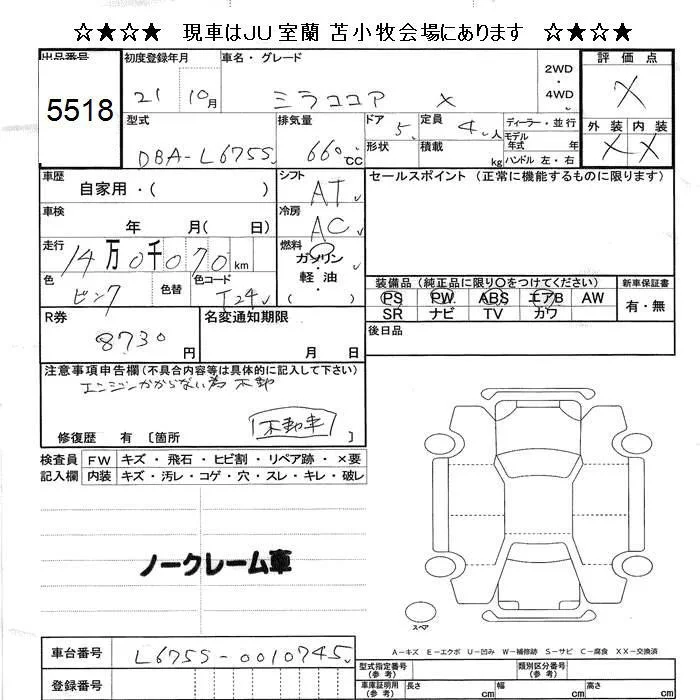 ☆★☆★　現車はJU室蘭 苫小牧会場にあります　☆★☆★
出品番号 初度登録年月 車名・グレード 評価点
5518 21 10月 ミラココア X 2WD・4WD X
型式 排気量 ドア 定員 ディーラー・並行 外装 内装
DBA-L675S 660cc 5 4人 モデル年式 年 X X
形状 積載 kg ハンドル 左・右
車歴 シフト セールスポイント（正常に機能するものに限ります）
自家用・（ ） AT
車検 冷房
年 月（ 日） AC
走行 燃料
14万0千070km ガソリン・軽油
色 色替 色コード （ ） 装備品（純正品に限り〇をつけてください） 新車保証書
ピンク T24 PS PW ABS エアB AW 有・無
R券 名変通知期限 SR ナビ TV カワ
8730円 月 日 後日品
注意事項申告欄（不具合内容等は具体的に記入して下さい）
エンジンかからない為 不動
不動車
修復歴 有 〔箇所 〕
検査員 FW キズ・飛石・ヒビ割・リペア跡・×要
記入欄 内装 キズ・汚レ・コゲ・穴・スレ・キレ・破レ
ノークレーム車
スペア
A－キズ E－エクボ U－凹み W－補修跡 S－サビ C－腐食 XX－交換済
車台番号 L675S-0010745 型式指定番号（参考） 類別区分番号（参考）
登録番号 車庫証明用（参考） 長さ cm 幅 cm 高さ cm